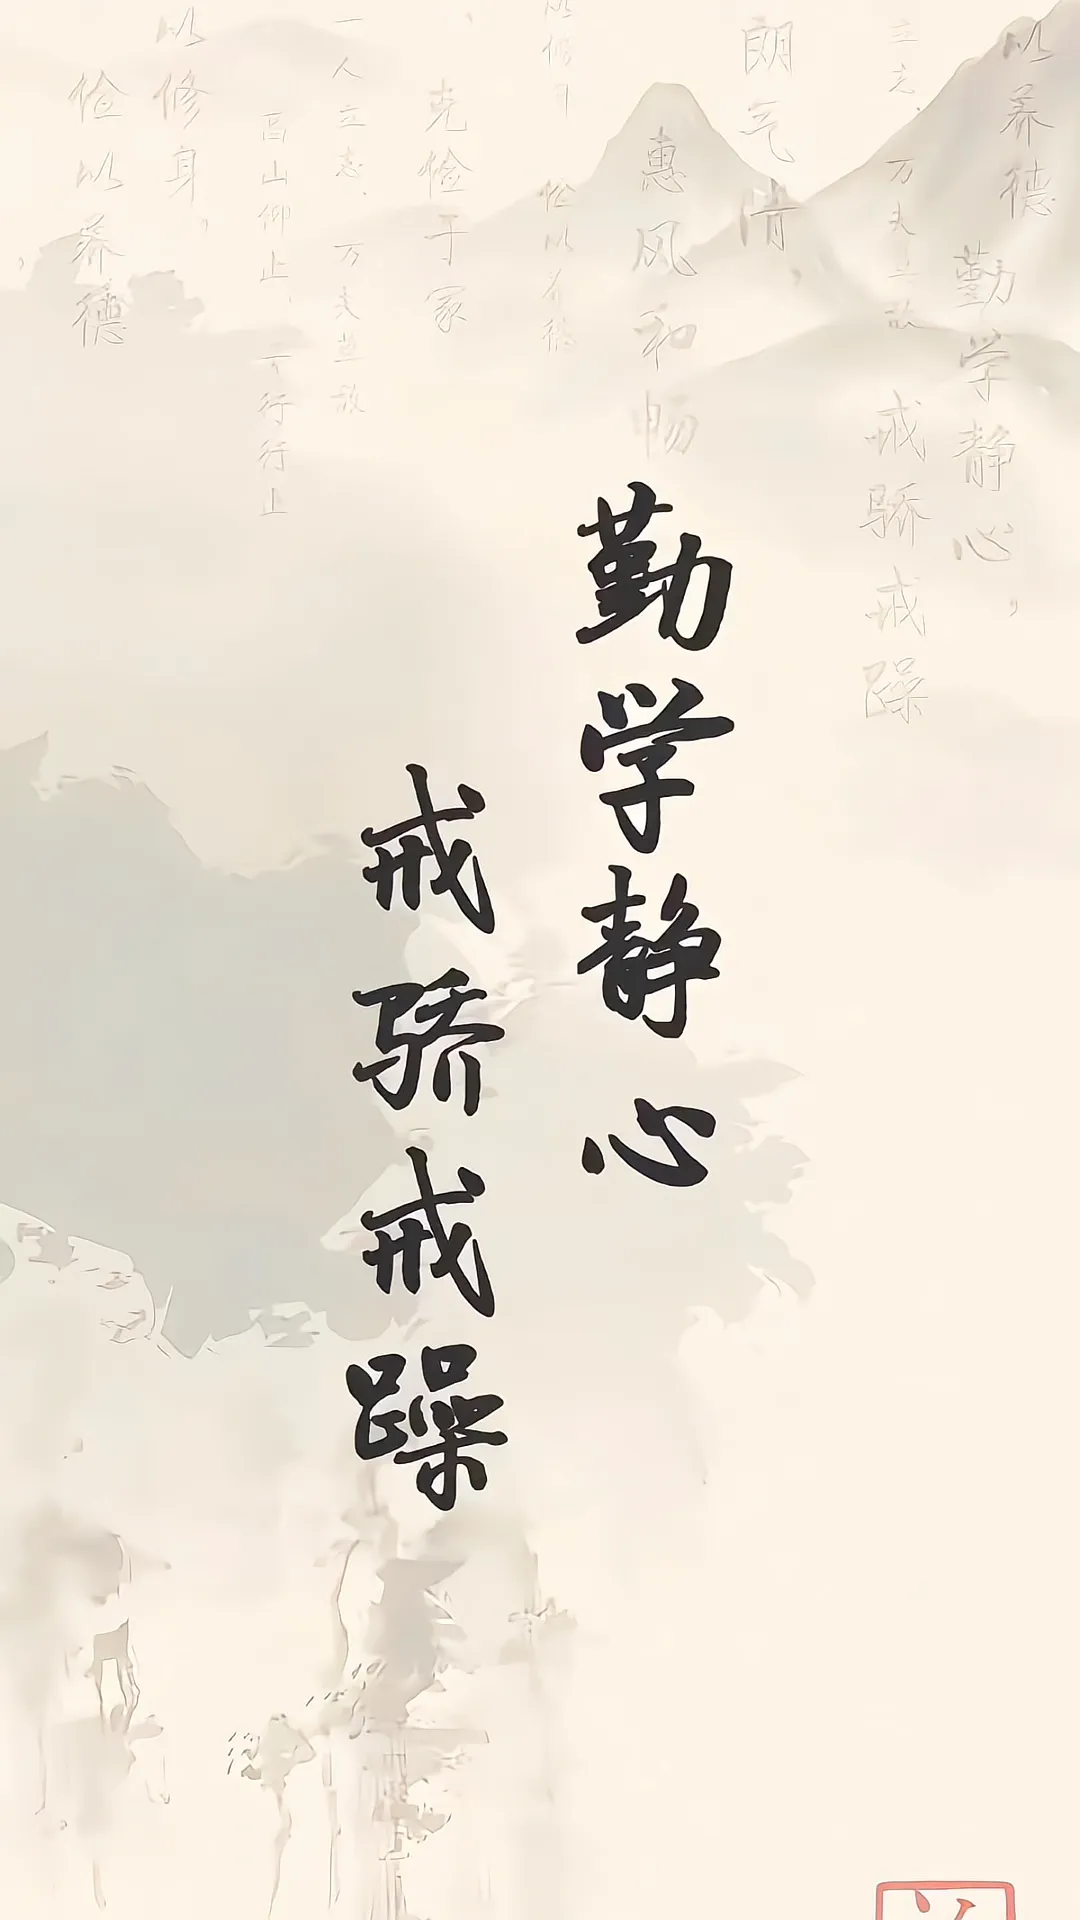 以养德
勤学静心，
戒骄戒躁
朗气清，
惠风和畅
俭以养德
克俭于家
一人立志、万夫
山仰止、行行止
以修身，
俭以养德
勤学静心
戒骄戒躁